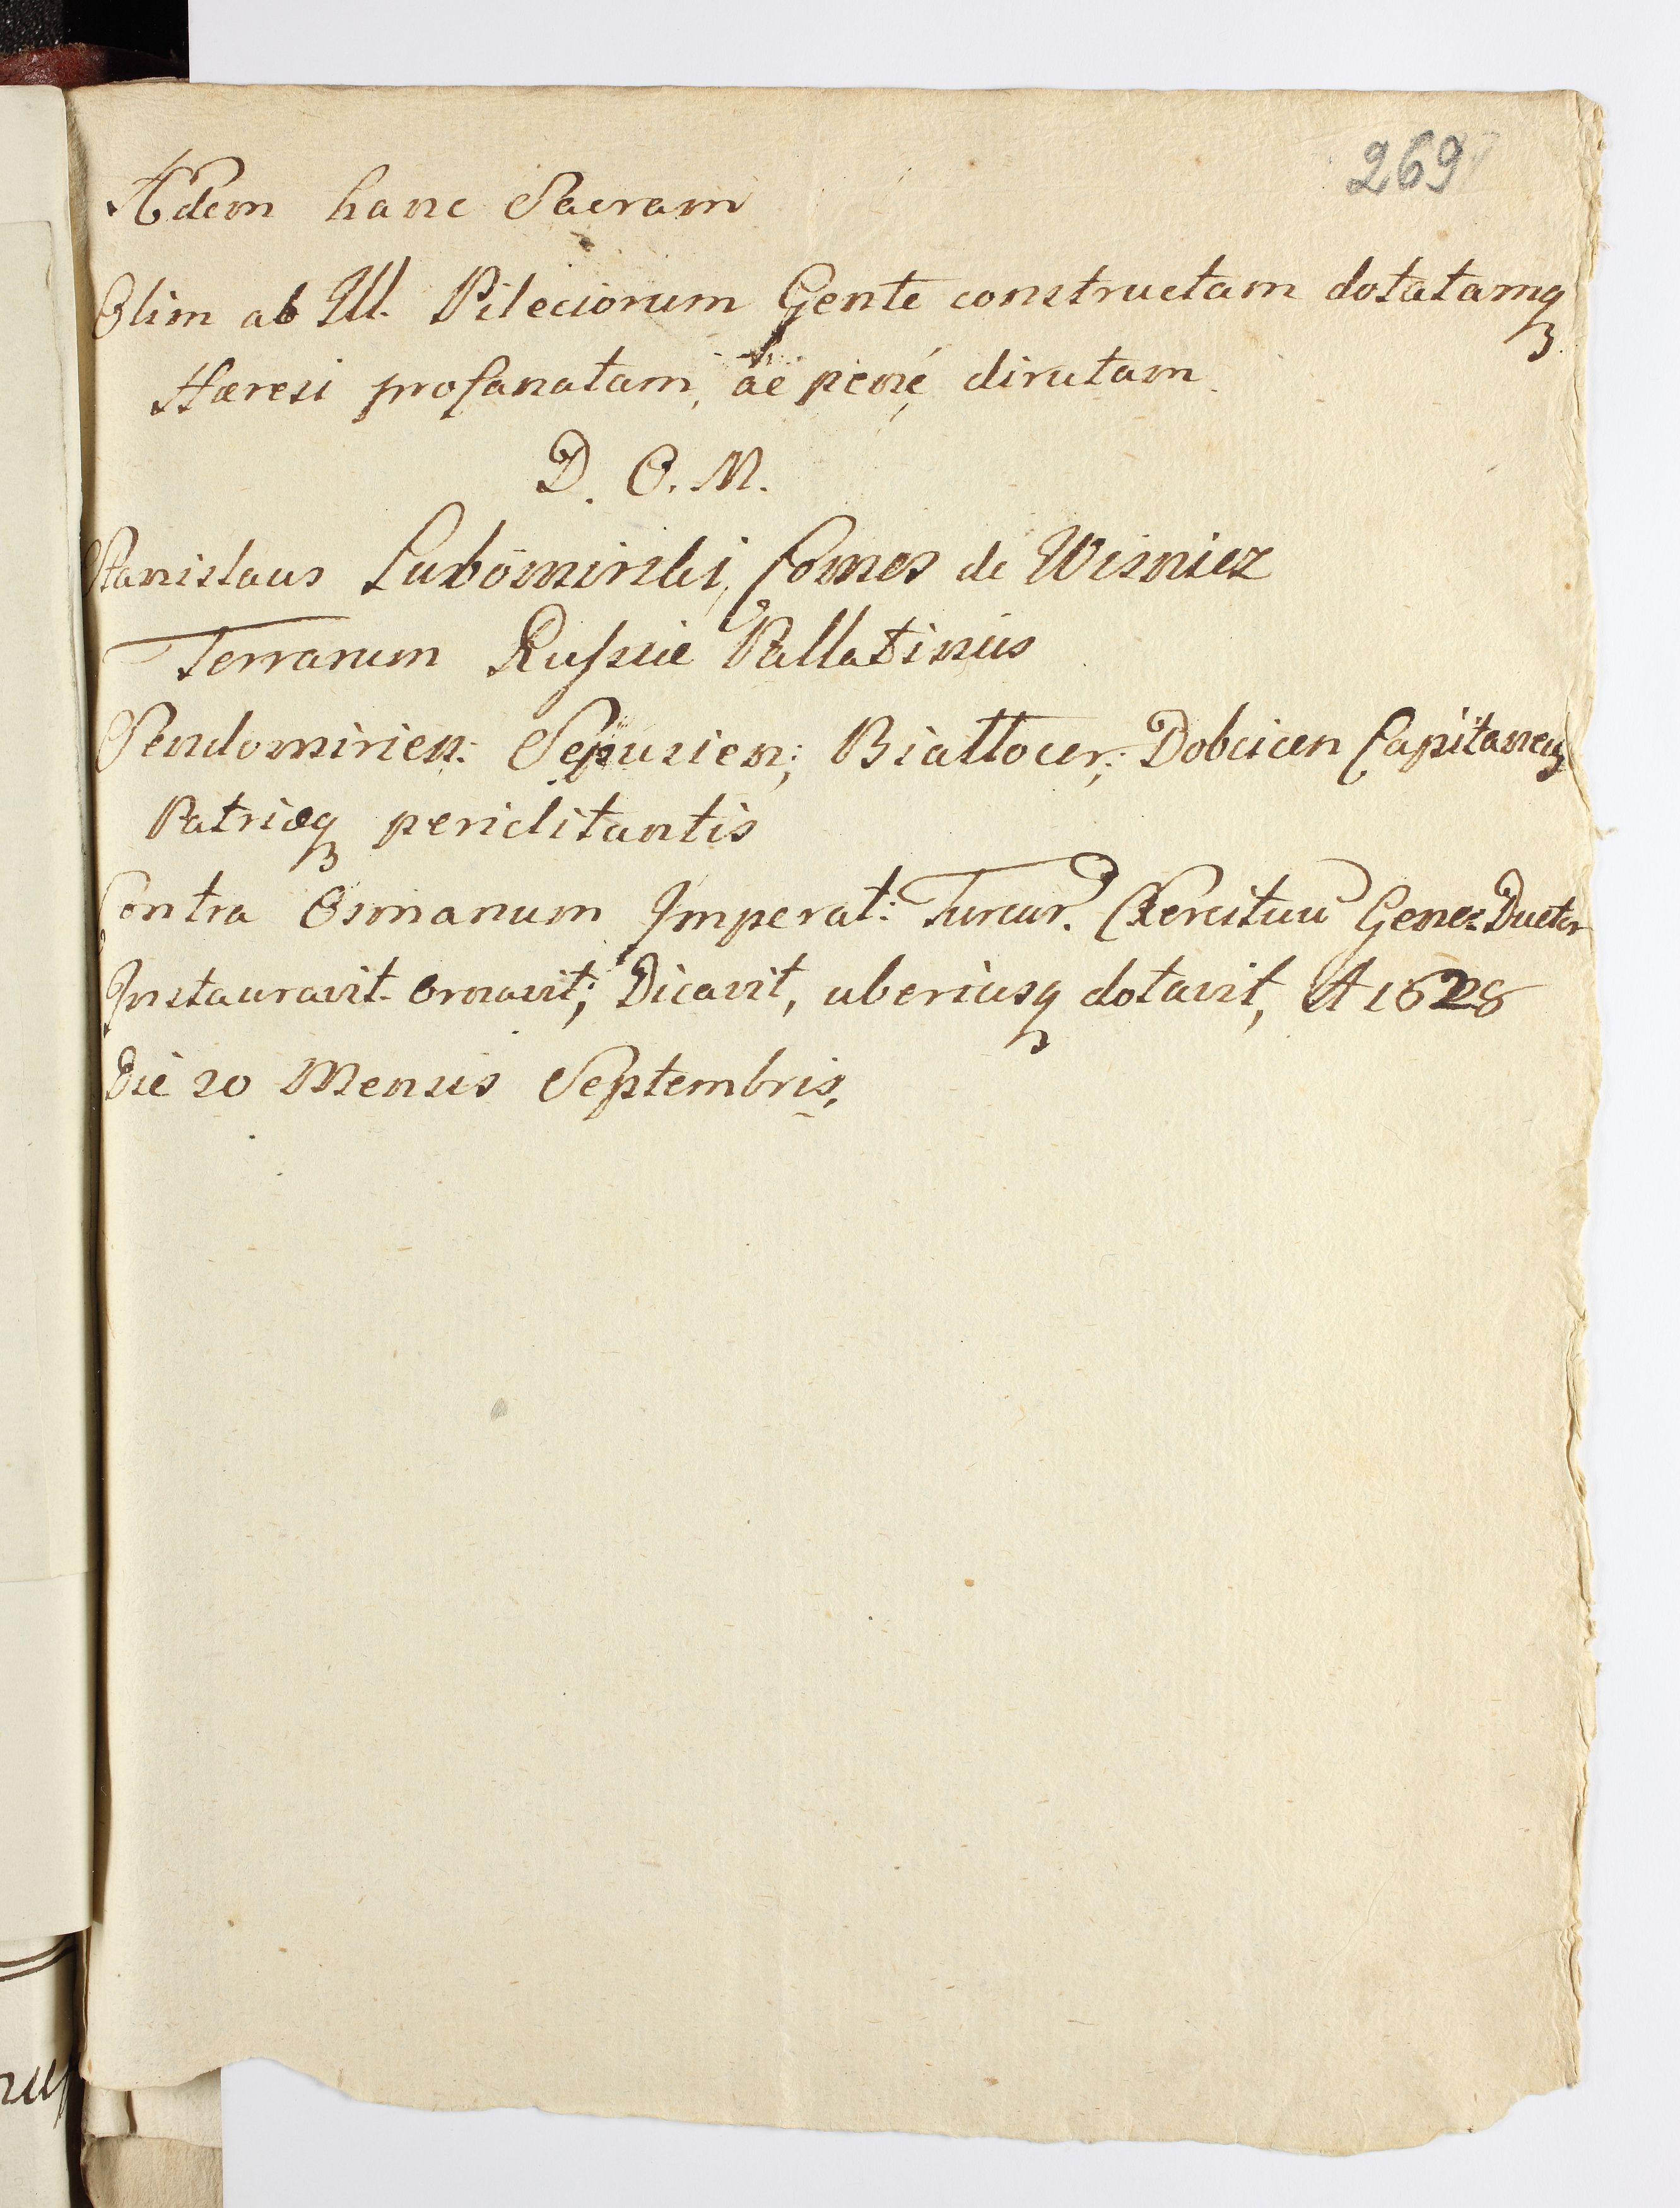 269
Ædem hanc Sacram
Olim ab Ill. Pileciorum Gente constructam dotatamq3
Hæresi profanatam, ac penè dirutam
D. O. M.
Stanislaus Lubomirski, Comes de Wisnicz
Terrarum Russiæ Pallatinus
Sendomirien: Sepusien; Białłocer; Dobcicen Capitaneus
Patriæq3 periclitantis
Contra Osmanum Imperat: Turcar. Exercituū Gener: Ductor
Instauravit. Ornavit; Dicavit, uberiusq3 dotavit, A 1628
Die 20 Mensis Septembris,